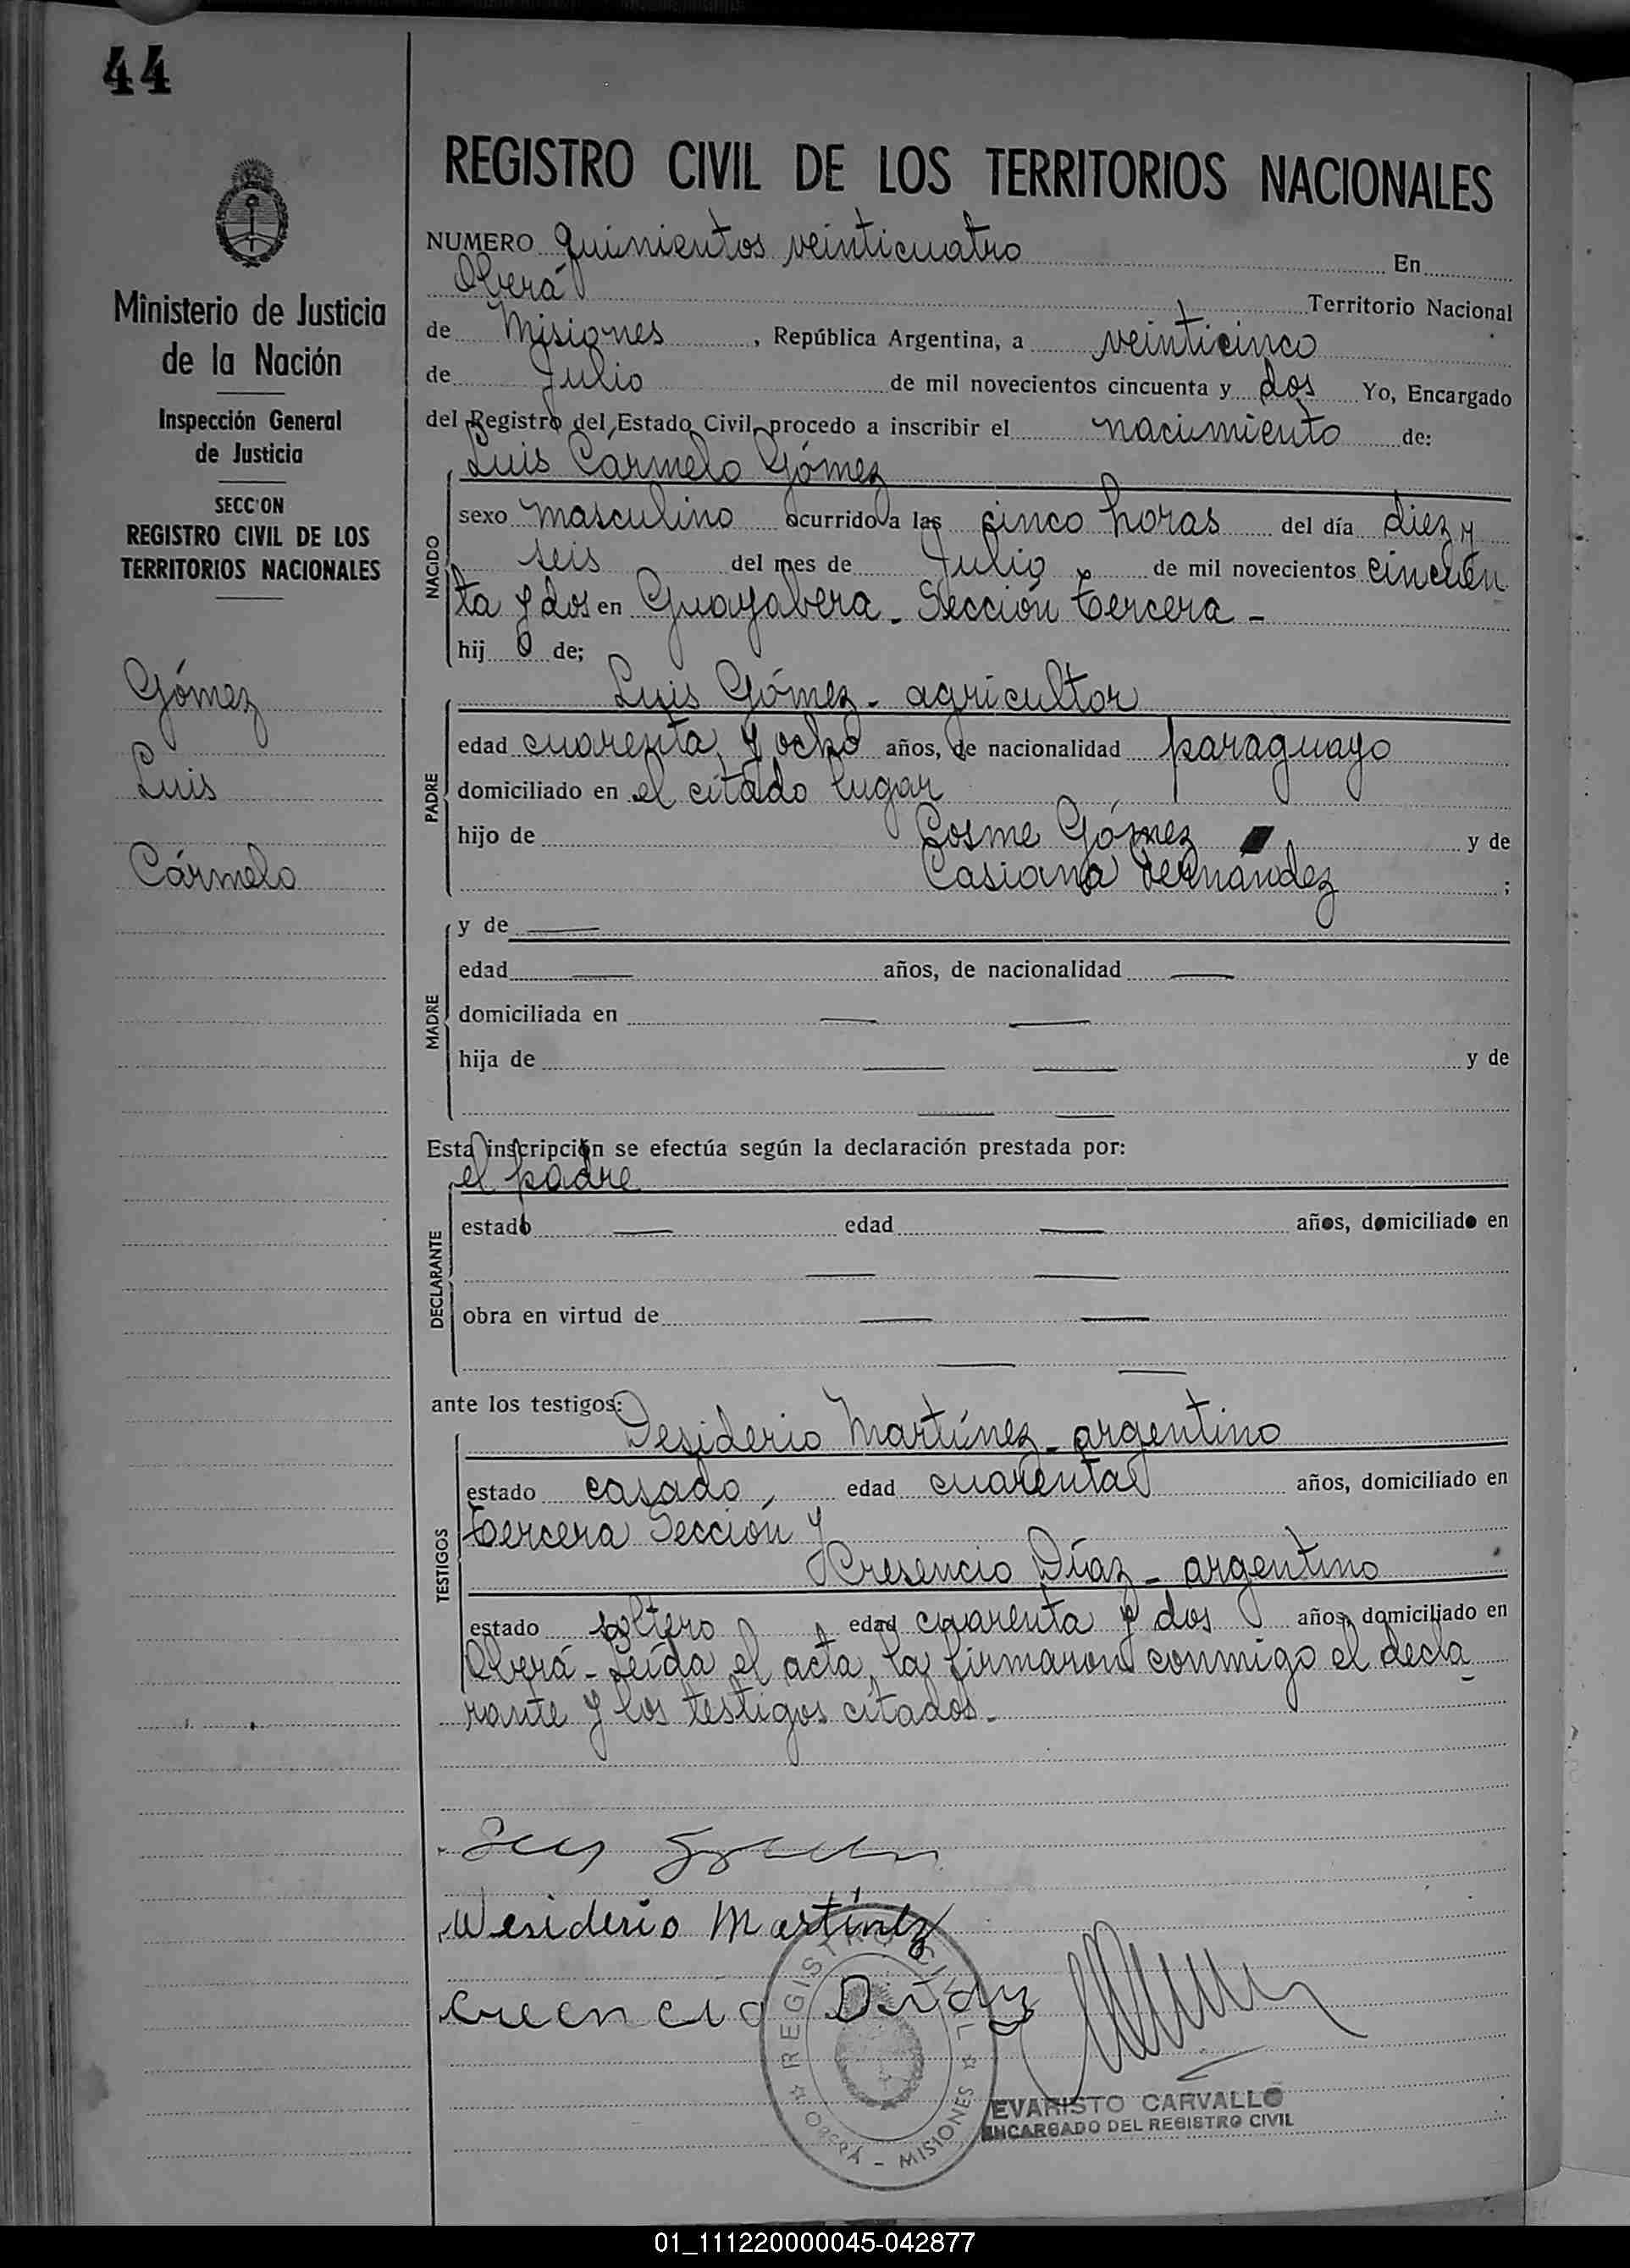 44
Ministerio de Justicia
de la Nación
Inspección General
de Justicia
SECCION
REGISTRO CIVIL DE LOS
TERRITORIOS NACIONALES
Gómez
Luis
Cármelo
REGISTRO CIVIL DE LOS TERRITORIOS NACIONALES
NUMERO quinientos veinticuatro En
Oberá Territorio Nacional
de Misiones, República Argentina, a veinticinco
de Julio de mil novecientos cincuenta y dos Yo, Encargado
del Registro del Estado Civil, procedo a inscribir el nacimiento de:
Luis Cármelo Gómez
NACIDO
sexo masculino ocurrido a las cinco horas del día diez y
seis del mes de Julio de mil novecientos cincuen
ta y dos en Guayabera - Sección tercera -
hij o de;
Luis Gómez - agricultor
PADRE
edad cuarenta y ocho años, de nacionalidad paraguayo
domiciliado en el citado lugar
hijo de Cosme Gómez y de
Casiana Fernández ;
y de —
MADRE
edad — años, de nacionalidad —
domiciliada en — —
hija de — — y de
— —
Esta inscripción se efectúa según la declaración prestada por:
el padre
DECLARANTE
estado — edad — años, domiciliado en
— —
obra en virtud de — —
— —
ante los testigos:
Desiderio Martínez - argentino
TESTIGOS
estado casado, edad cuarenta años, domiciliado en
tercera Sección y
Cresencio Díaz - argentino
estado soltero edad cuarenta y dos años, domiciliado en
Oberá - Leída el acta, la firmaron conmigo el decla
rante y los testigos citados -
Desiderio Martínez
Creencio Diaz
REGISTRO CIVIL
OBERÁ - MISIONES
EVARISTO CARVALLO
ENCARGADO DEL REGISTRO CIVIL
01_111220000045-042877